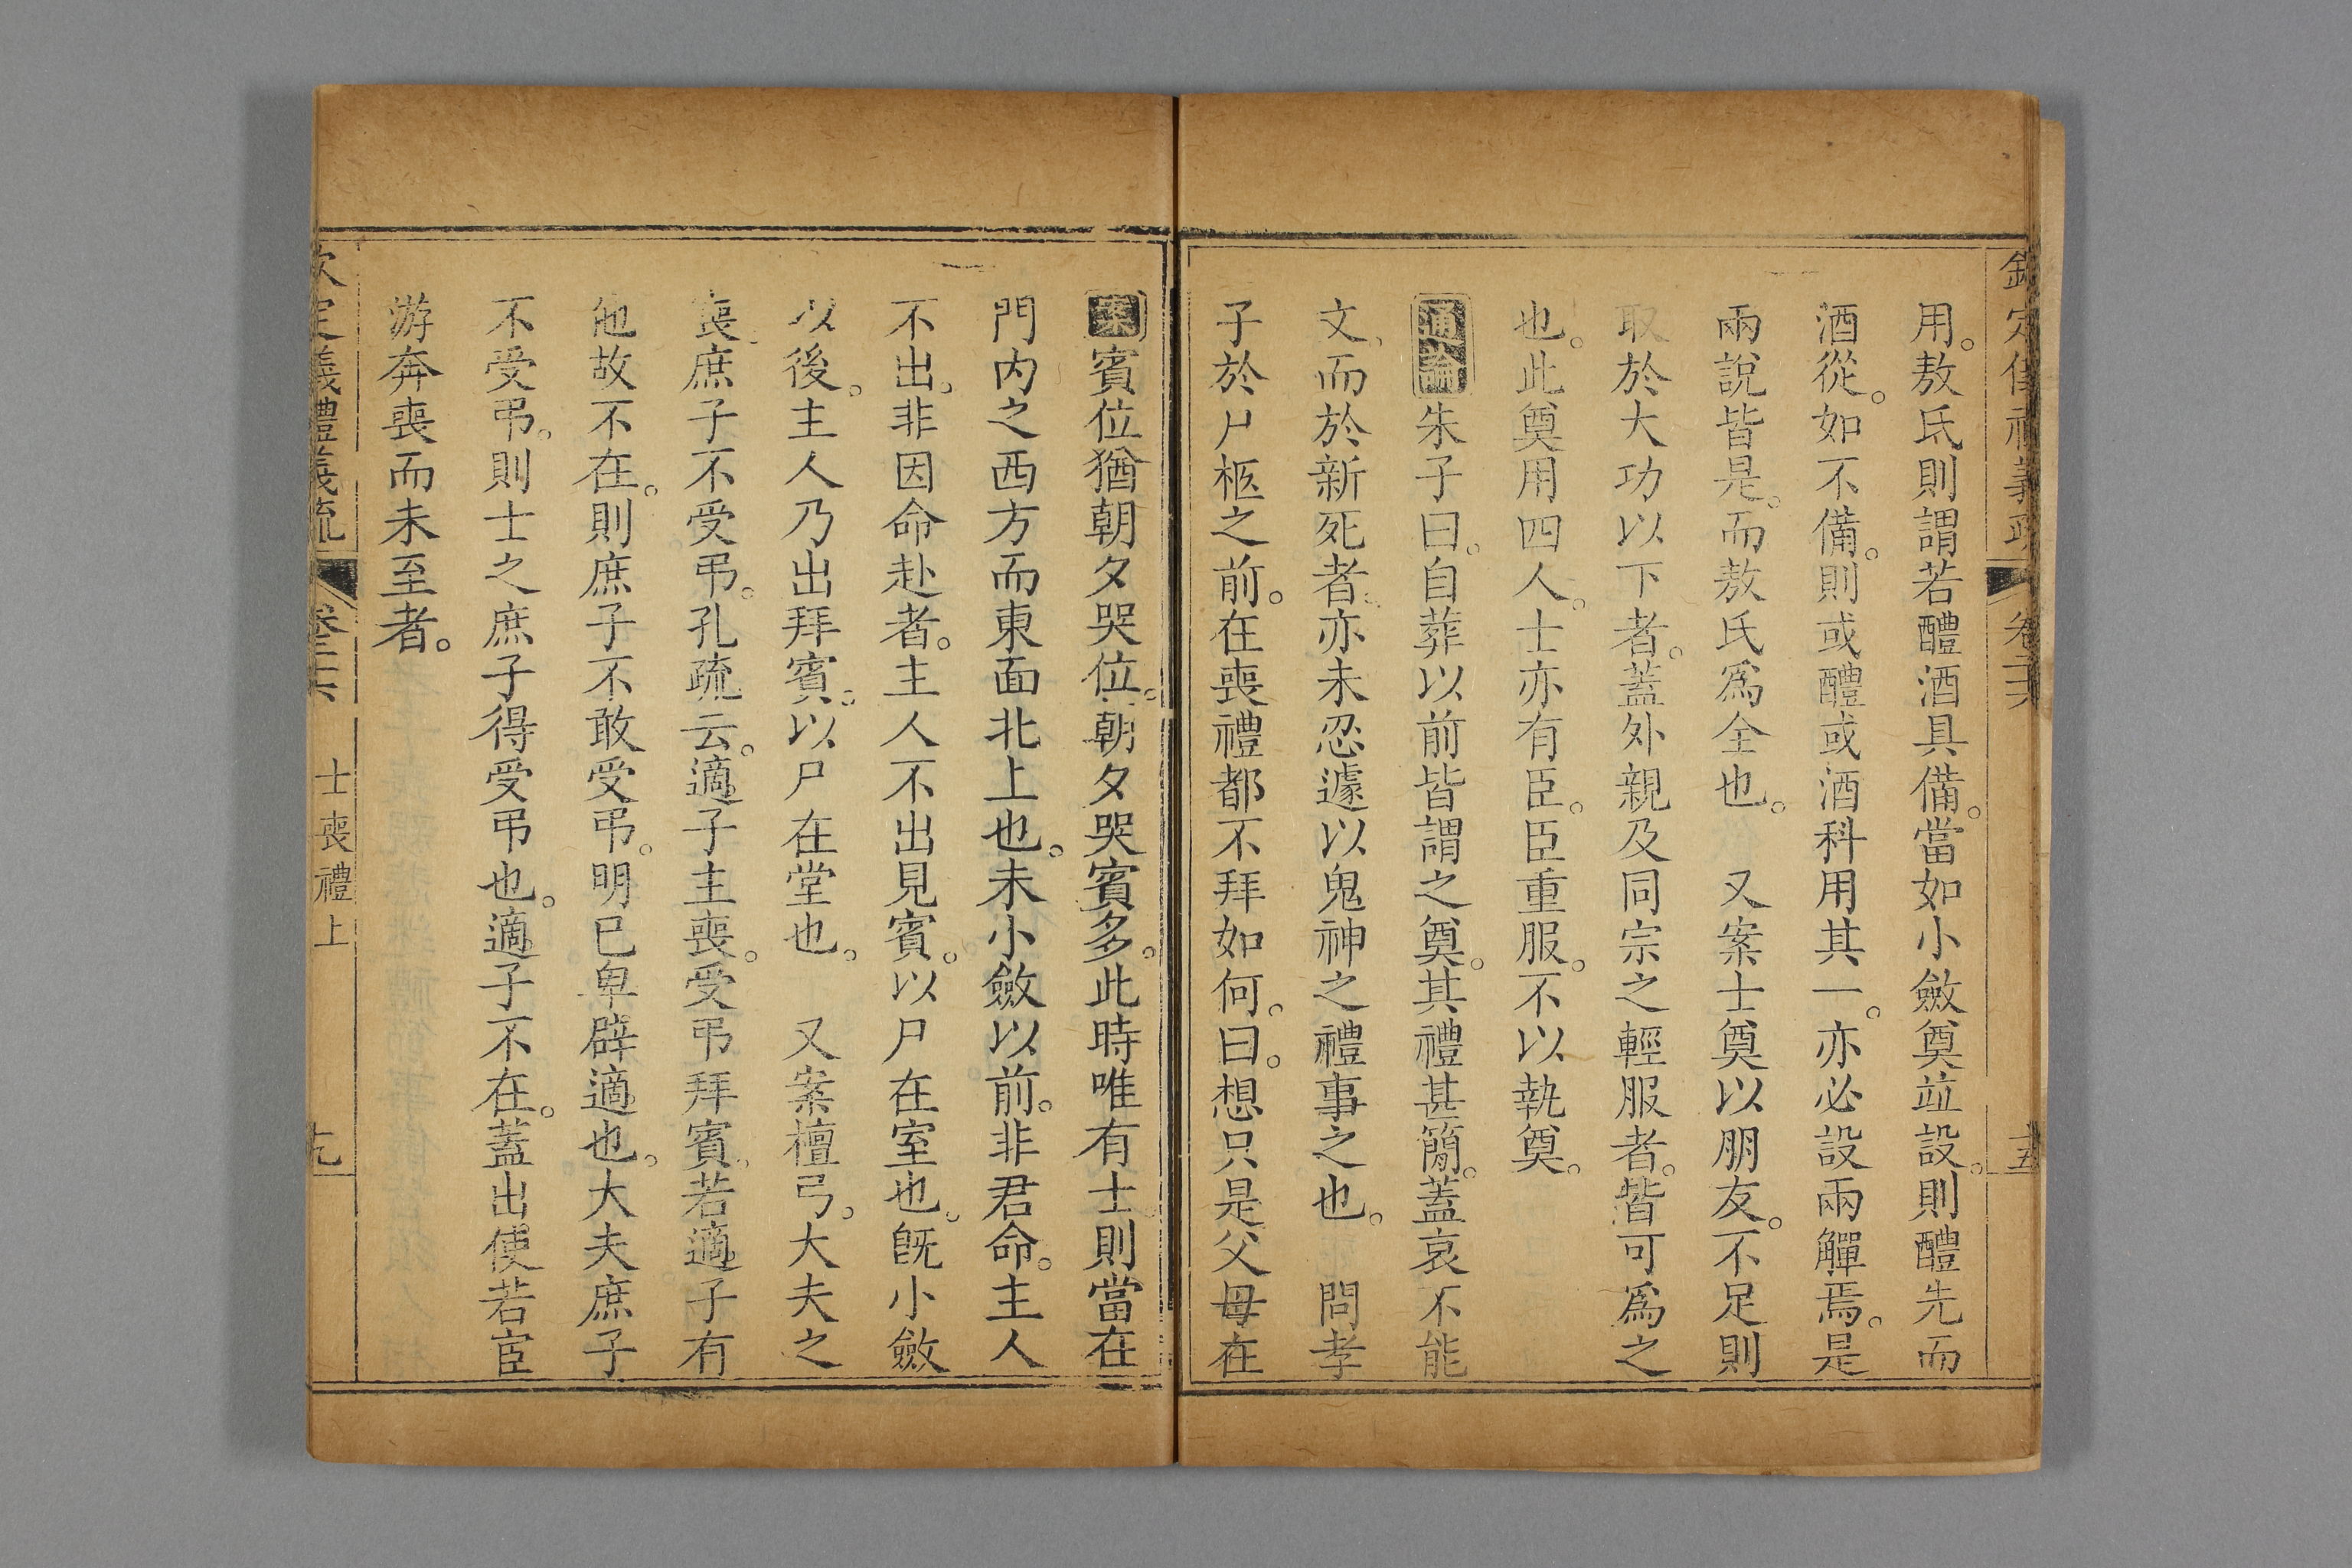 欽定儀禮義疏 卷二十六 十五
用。敖氏則謂若醴酒具備。當如小斂奠竝設。則醴先而
酒從。如不備。則或醴或酒科用其一。亦必設兩觶焉。是
兩說皆是。而敖氏爲全也。 又案士奠以朋友。不足則
取於大功以下者。蓋外親及同宗之輕服者。皆可爲之
也。此奠用四人。士亦有臣。臣重服。不以執奠。
通論朱子曰。自葬以前皆謂之奠。其禮甚簡。蓋哀不能
文、而於新死者、亦未忍遽以鬼神之禮事之也。 問孝
子於尸柩之前。在喪禮都不拜如何。曰。想只是父母在
案賓位猶朝夕哭位。朝夕哭賓多。此時唯有士則當在
門内之西方而東面北上也。未小斂以前。非君命。主人
不出。非因命赴者。主人不出見賓。以尸在室也。旣小斂
以後。主人乃出拜賓。以尸在堂也。 又案檀弓。大夫之
喪庶子不受弔。孔疏云。適子主喪。受弔拜賓、若適子有
他故不在。則庶子不敢受弔。明已卑辟適也。大夫庶子
不受弔。則士之庶子得受弔也。適子不在。蓋出使若宦
游奔喪而未至者。
欽定儀禮義疏 卷二十六 士喪禮上